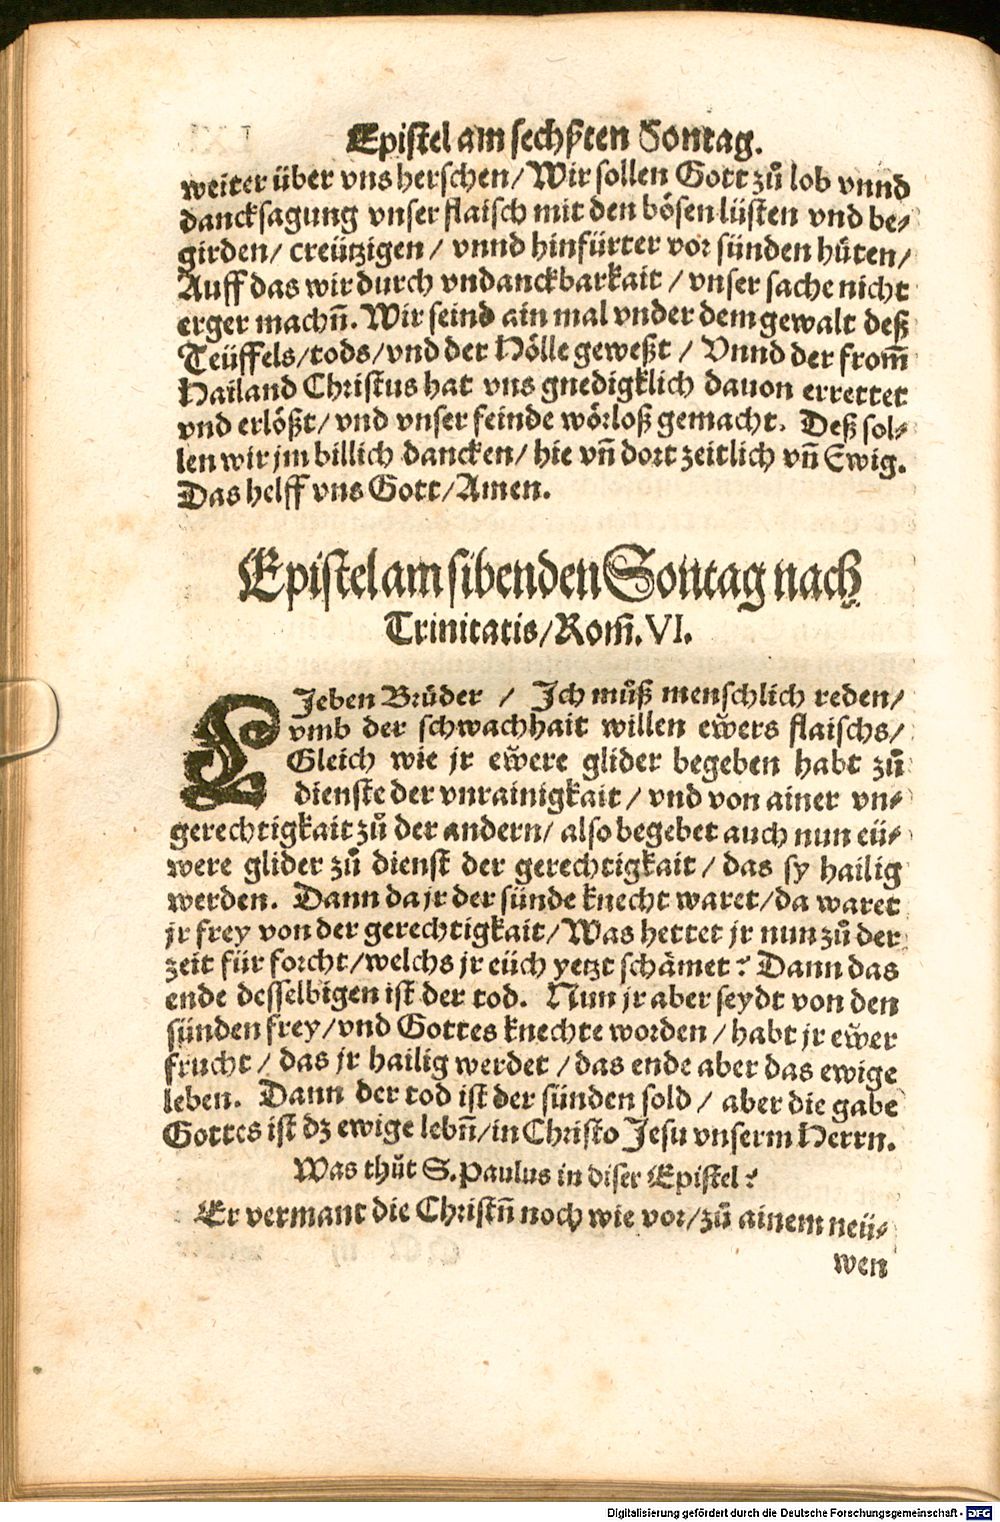 Epistel am sechßten Sontag.
weiter über vns herschen/ Wir sollen Gott zů lob vnnd
dancksagung vnser flaisch mit den bösen lüsten vnd be-
girden/ creützigen/ vnnd hinfürter vor sünden hüten/
Auff das wir durch vndanckbarkait/ vnser sache nicht
erger machñ. Wir seind ain mal vnder dem gewalt deß
Teüffels/ tods/ vnd der Hölle geweßt/ Vnnd der from̃
Hailand Christus hat vns gnedigklich dauon errettet
vnd erlößt/ vnd vnser feinde wörloß gemacht. Deß sol-
len wir jm billich dancken/ hie vñ dort zeitlich vñ Ewig.
Das helff vns Gott/ Amen.
Epistel am sibenden Sontag nach
Trinitatis/ Rom̃. VI.
LIeben Brůder/ Ich můß menschlich reden/
vmb der schwachhait willen ew̌ers flaischs/
Gleich wie jr ew̌ere glider begeben habt zů
dienste der vnrainigkait/ vnd von ainer vn-
gerechtigkait zů der andern/ also begebet auch nun eü-
were glider zů dienst der gerechtigkait/ das sy hailig
werden. Dann da jr der sünde knecht waret/ da waret
jr frey von der gerechtigkait/ Was hettet jr nun zů der
zeit für forcht/ welchs jr eüch yetzt schämet? Dann das
ende desselbigen ist der tod. Nun jr aber seydt von den
sünden frey/ vnd Gottes knechte worden/ habt jr ew̌er
frucht/ das jr hailig werdet/ das ende aber das ewige
leben. Dann der tod ist der sünden sold/ aber die gabe
Gottes ist dz ewige lebñ/ in Christo Jesu vnserm Herrn.
Was thůt S. Paulus in diser Epistel?
Er vermant die Christñ noch wie vor/ zů ainem neü-
wen
Digitalisierung gefördert durch die Deutsche Forschungsgemeinschaft - DFG